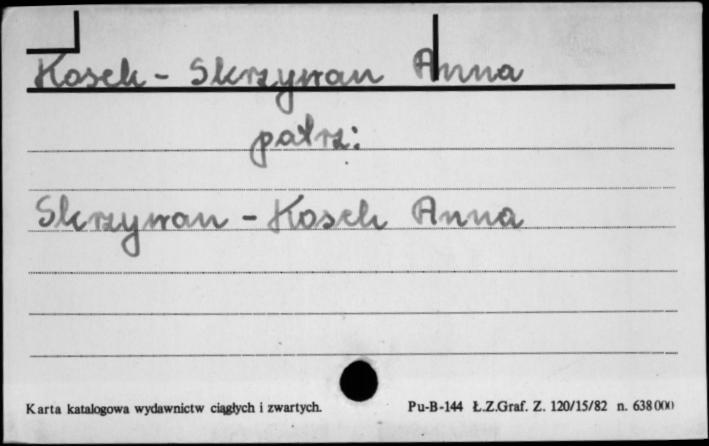 Kosek - Skrzywan Anna
patrz:
Skrzywan - Kosek Anna
Karta katalogowa wydawnictw ciągłych i zwartych. Pu-B-144 Ł.Z.Graf. Z. 120/15/82 n. 638000